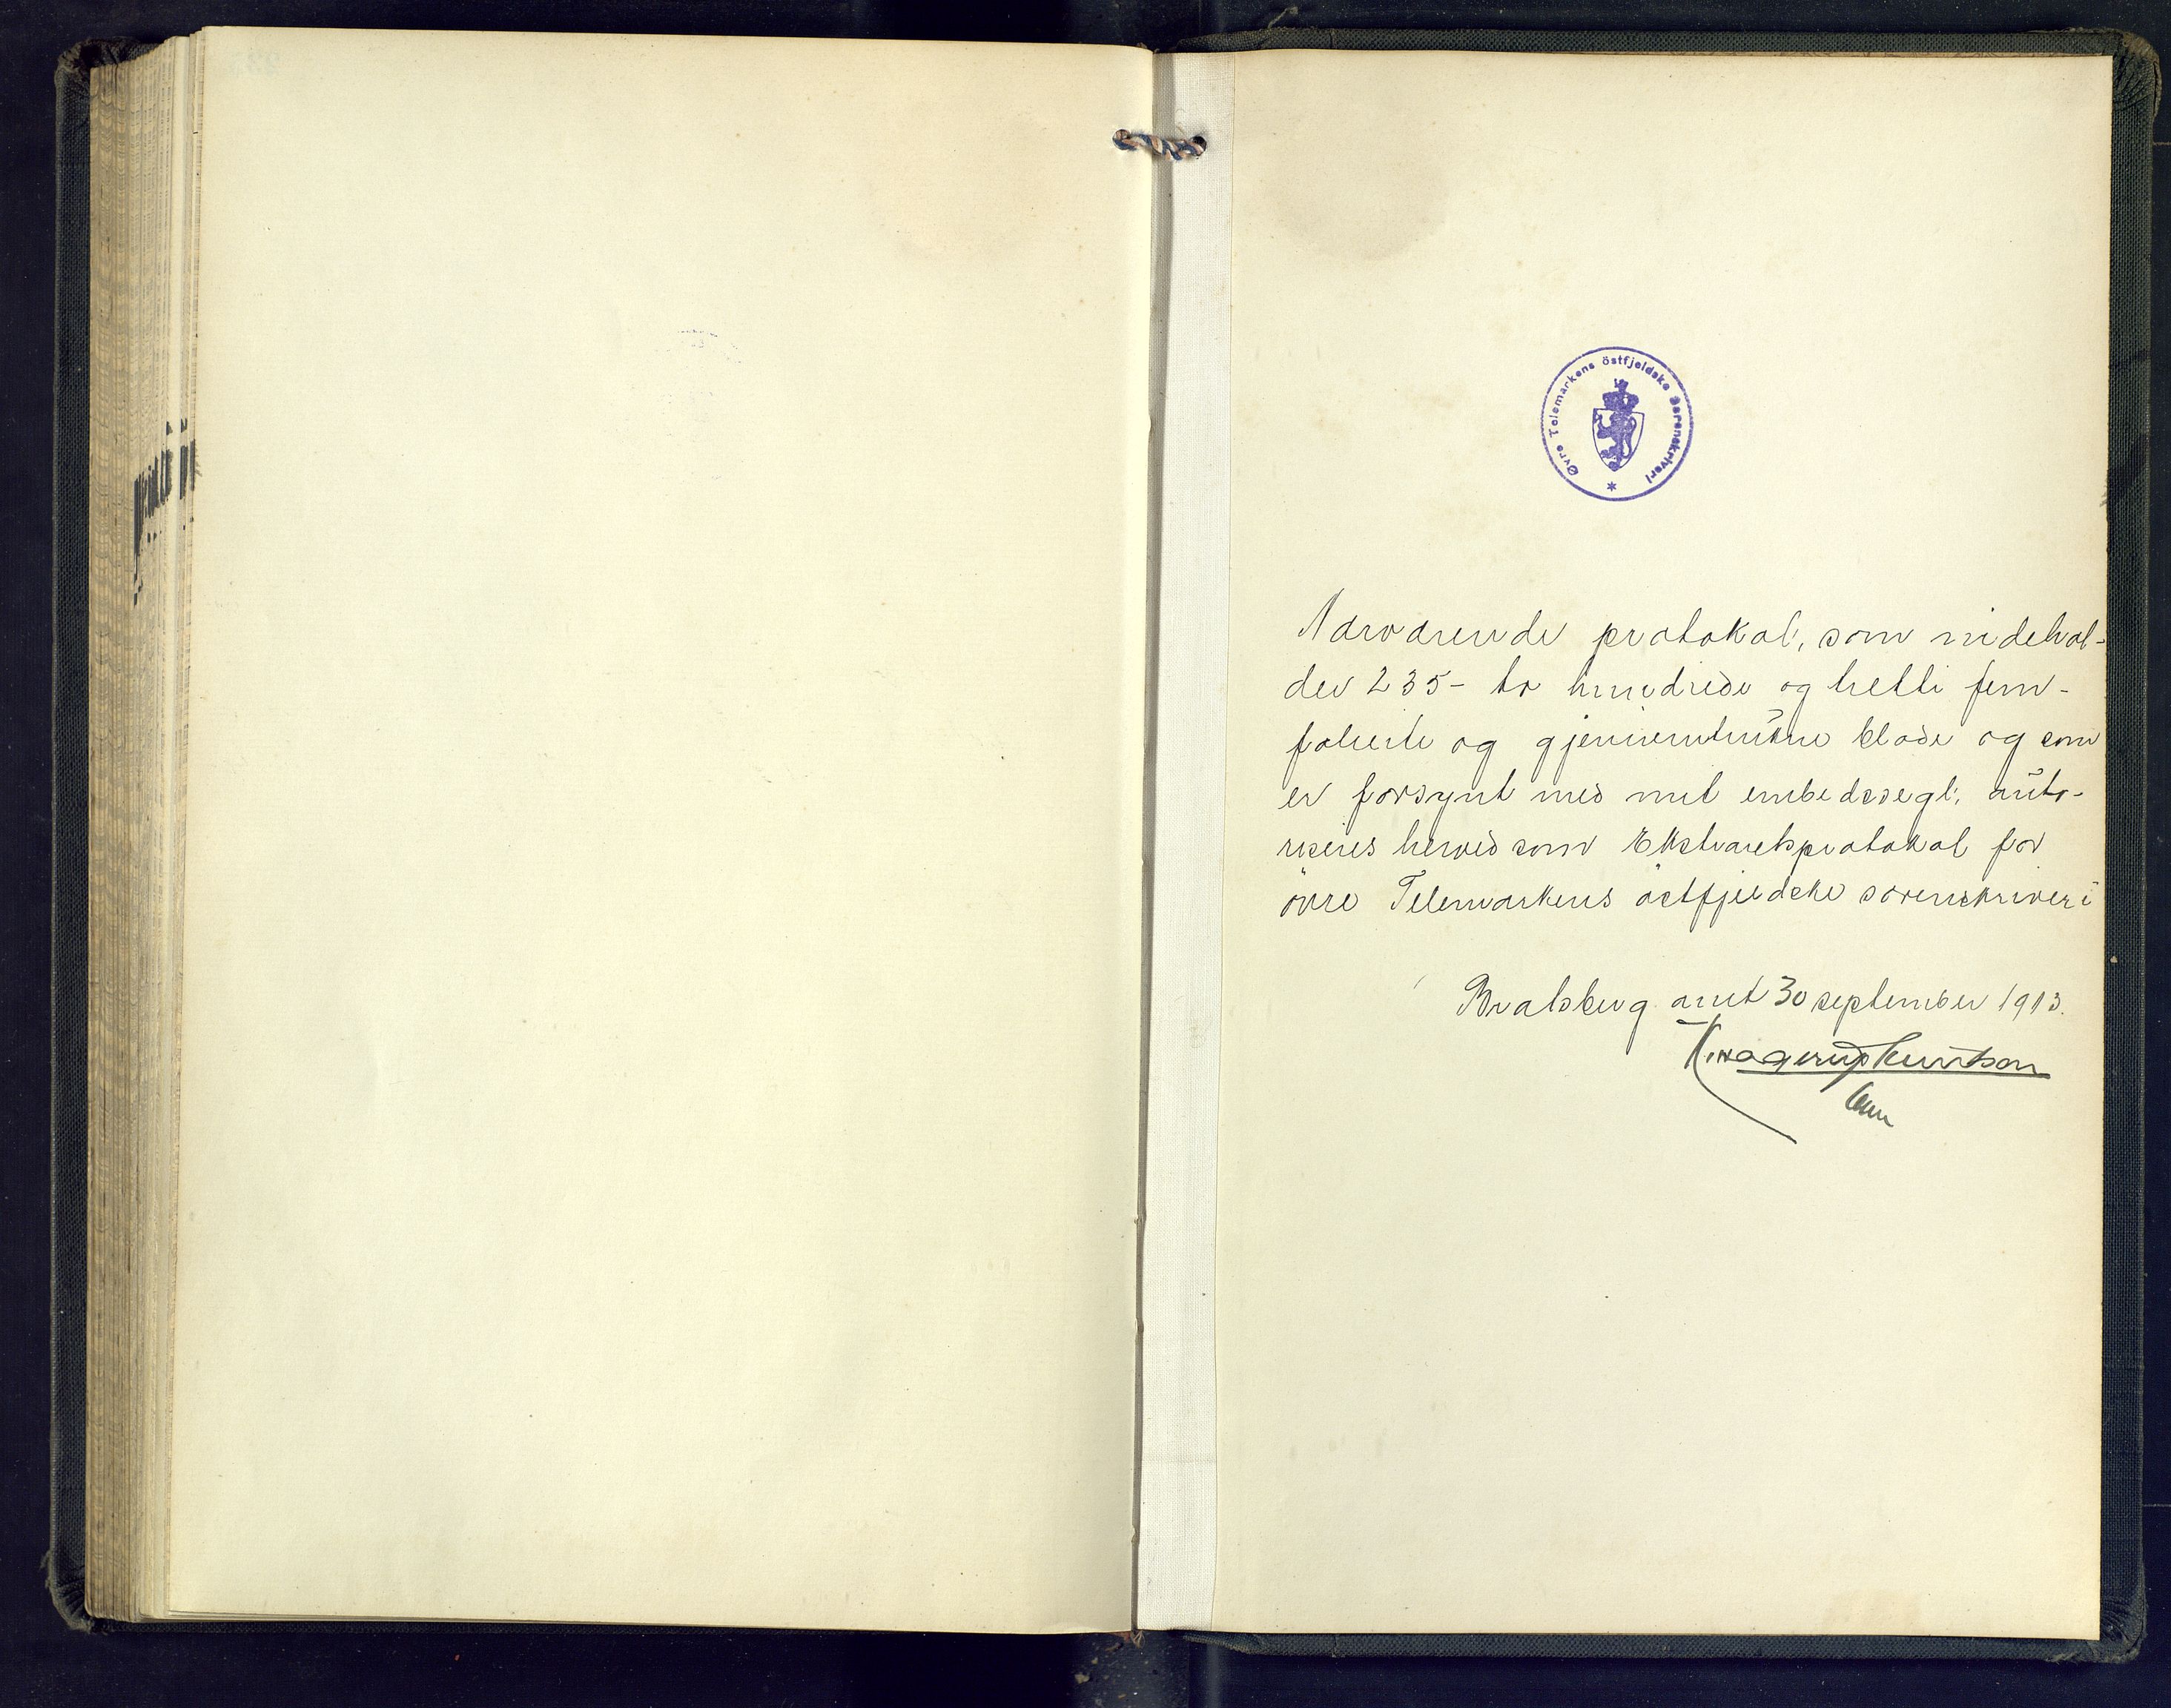 Øvre Telemarkens östfjeldske Sorenskriveri
Nærværende protokol, som indehol-
der 235 - to hundrede og tretti fem -
folierte og gjennemtrukne blade og som
er forsynt med mit embedssegl, auto-
riseres herved som Ekstraretsprotokol for
övre Telemarkens östfjeldske sorenskriveri
Bratsberg amt 30 september 1913.